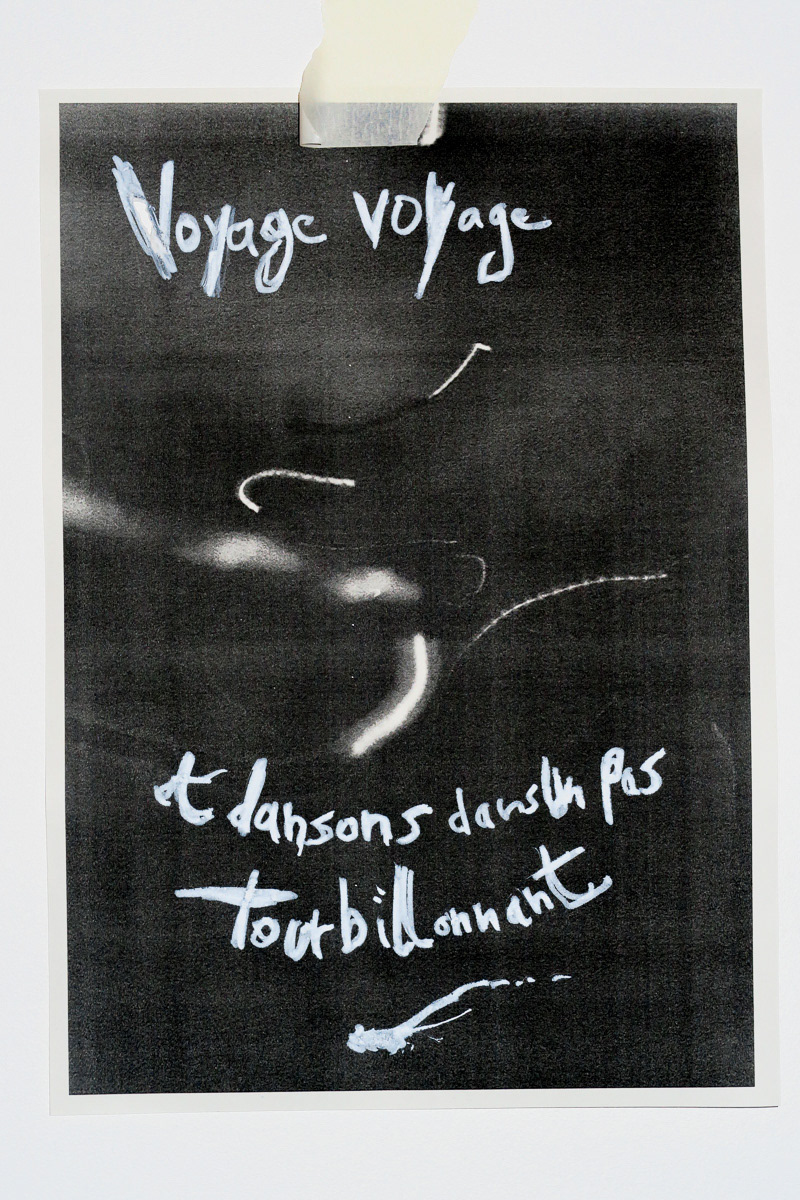 Voyage voyage
et dansons dans un pas
Tourbillonnant